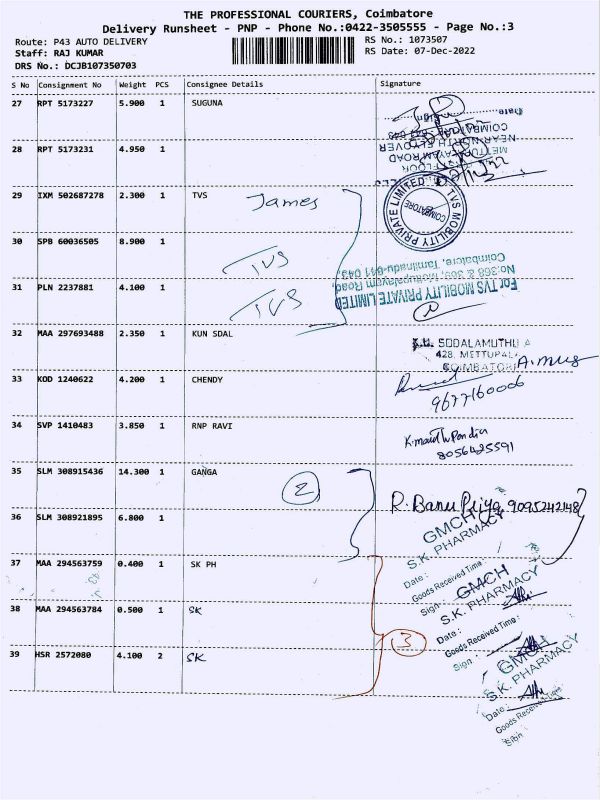 THE PROFESSIONAL COURIERS, Coimbatore
Delivery Runsheet - PNP - Phone No.:0422-3505555 - Page No.:3
Route: P43 AUTO DELIVERY
RS No.: 1073507
Staff: RAJ KUMAR
RS Date: 07-Dec-2022
DRS No.: DCJB107350703
S No Consignment No Weight PCS Consignee Details Signature
27 RPT 5173227 5.900 1 SUGUNA
28 RPT 5173231 4.950 1
Date
COIMBATORE
NEAR NORTH FLYOVER
METTUPALAYAM ROAD
29 IXM 502687278 2.300 1 TVS James
TVS MOBILITY PRIVATE LIMITED
COIMBATORE
30 SPB 60036505 8.900 1 TVS
31 PLN 2237881 4.100 1 TVS
For TVS MOBILITY PRIVATE LIMITED
No:368 & 369, Mettupalayam Road,
Coimbatore, Tamilnadu-641 043.
32 MAA 297693488 2.350 1 KUN SDAL
SODALAMUTHU
428, METTUPAL
COIMBATORE
33 KOD 1240622 4.200 1 CHENDY
9677160006
34 SVP 1410483 3.850 1 RNP RAVI
8056425591
35 SLM 308915436 14.300 1 GANGA
2
R. Banu Priya 9095242148
36 SLM 308921895 6.800 1
GMCH
S.K. PHARMACY
Date :
Goods Received Time :
Sign :
37 MAA 294563759 0.400 1 SK PH
GMCH
S.K. PHARMACY
Date :
Goods Received Time :
Sign :
38 MAA 294563784 0.500 1 SK
3
39 HSR 2572080 4.100 2 SK
GMCH
S.K. PHARMACY
Date :
Goods Received Time :
Sign :